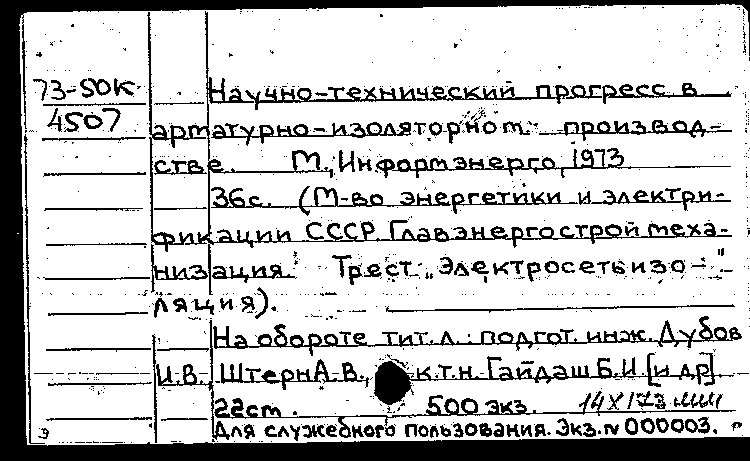 73-50К Научно-технический прогресс в
4507 арматурно-изоляторном производ-
стве. М., Информэнерго, 1973
36с. (М-во энергетики и электри-
фикации СССР. Главэнергостроймеха-
низация. Трест „Электросетьизо-"
ляция).
На обороте тит. л.: подгот. инж. Дубов
И.В., Штерн А.В., к.т.н. Гайдаш Б.И [и др].
22см. 500 экз.
Для служебного пользования. Экз. № 000003.